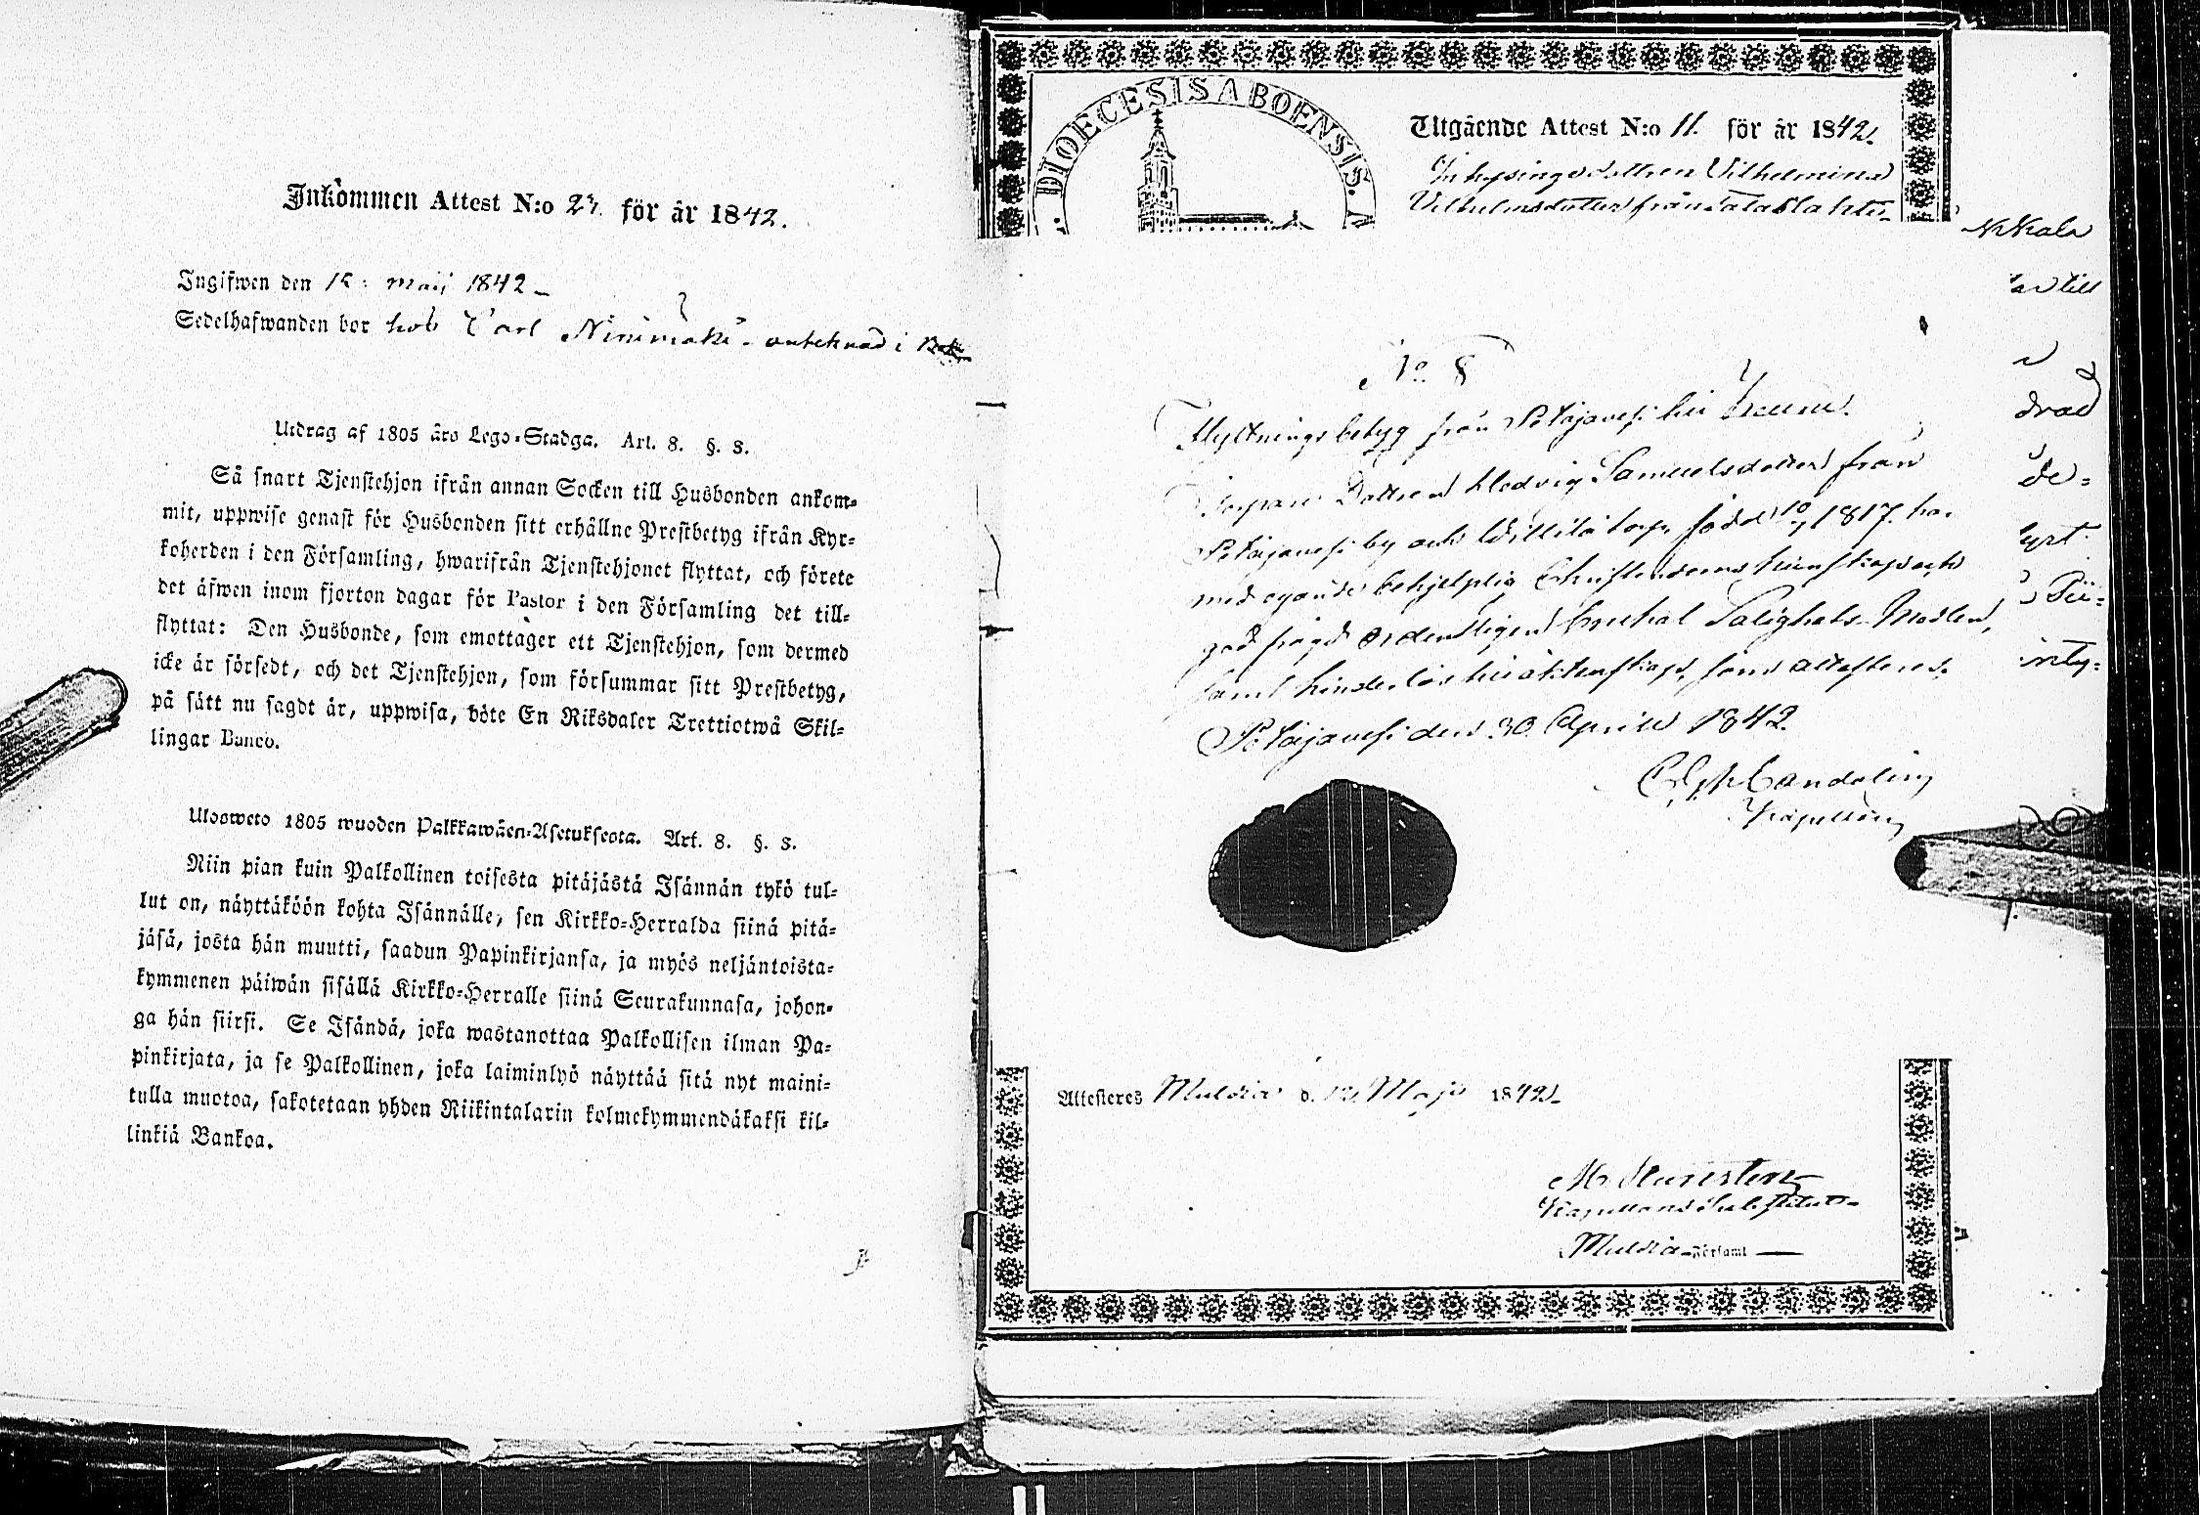 Inkommen Attest N:o 27. för år 1842.
Ingifwen den 15: maij 1842 -
Sedelhafwanden bor hos Carl Ninimäki - antecknad i
Utdrag af 1805 års Lego-Stadga. Art. 8. §. 3.
Så snart Tjenstehjon ifrån annan Socken till Husbonden ankom-
mit, uppwise genast för Husbonden sitt erhållne Prestbetyg ifrån Kyr-
koherden i den Församling, hwarifrån Tjenstehjonet flyttat, och förete
det äfwen inom fjorton dagar för Pastor i den Församling det till-
flyttat: Den Husbonde, som emottager ett Tjenstehjon, som dermed
icke är försedt, och det Tjenstehjon, som försummar sitt Prestbetyg,
på sätt nu sagdt är, uppwisa, böte En Riksdaler Trettiotwå Skil-
lingar Banco.
Ulosweto 1805 wuoden Palkkawäen-Asetuksesta. Art. 8. §. 3.
Niin pian kuin Palkollinen toisesta pitäjästä Isännän tykö tul-
lut on, näyttäköön kohta Isännälle, sen Kirkko-Herralda siinä pitä-
jäsä, josta hän muutti, saadun Papinkirjansa, ja myös neljäntoista-
kymmenen päiwän sisällä Kirkko-Herralle siinä Seurakunnasa, johon-
ga hän siirsi. Se Isändä, joka wastanottaa Palkollisen ilman Pa-
pinkirjata, ja se Palkollinen, joka laiminlyö näyttää sitä nyt maini-
tulla muotoa, sakotetaan yhden Riikintalarin kolmekymmendäkaksi kil-
linkiä Bankoa.
DIOECESIS ABOENSIS.
Utgående Attest N:o 11. för år 1842.
Inhysingsdottren Vilhelmina
Vilhelmsdotter från
No 8
Flyttningsbetyg från Petäjävesi till
Torpare Dottren Hedvig Samuelsdotter från
Petäjävesi by och torp, född 10/ 1817. har
med egande behjelplig Christendoms kunskap och
god frägd ordentligen brukat Salighets Medlen,
samt hinderlös till äktenskap, som attesteras.
Petäjävesi den 30 April 1842.
Candolin
Kapellan
Attesteres Muldia d. 12 Maji 1842.
Kapellans Substitut
Muldia Församl
ar till
drad
de-
lyst
inty-